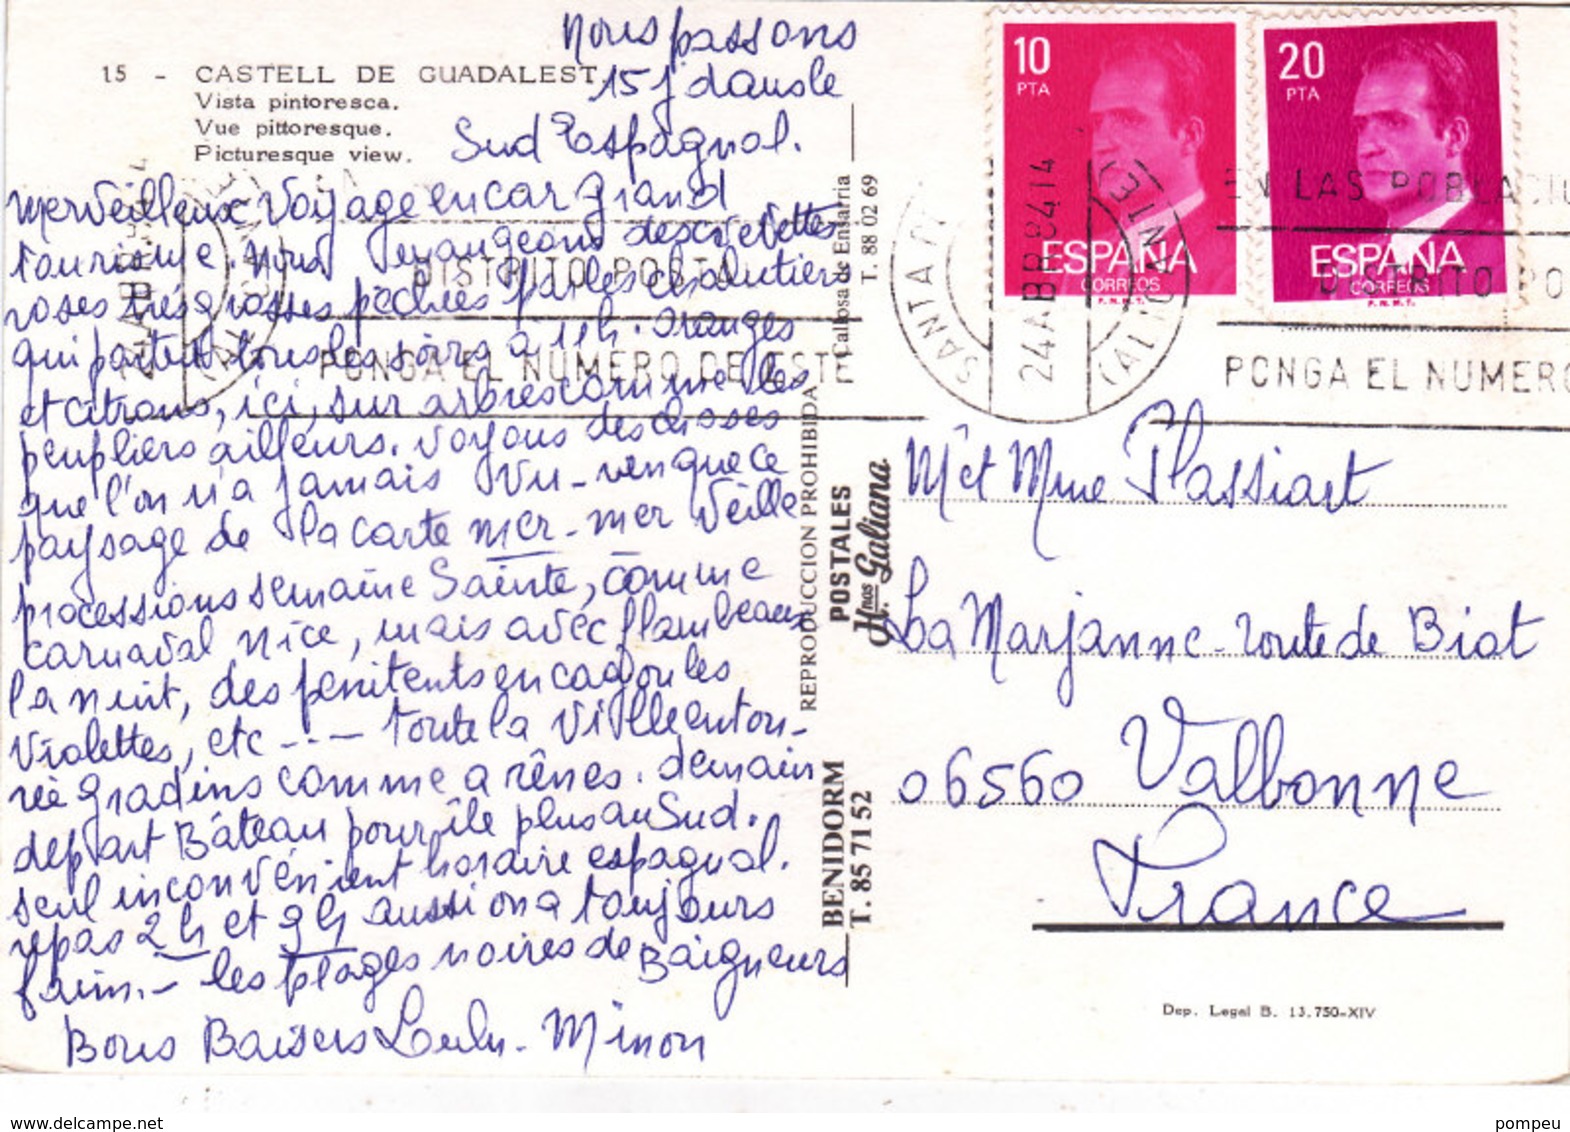 Nous passons
15 j dans le
Sud Espagnol.
15 - CASTELL DE GUADALEST.
Vista pintoresca.
Vue pittoresque.
Picturesque view.
merveilleux voyage en car grand
tourisme. nous mangeons des crevettes
roses très grosses pêchées par les chalutiers
qui partent tous les soirs à 11h. oranges
et citrons, ici, sur arbres comme les
peupliers ailleurs. voyons des choses
que l'on n'a jamais vu - rien que ce
paysage de la carte mer - mer veille
processions semaine Sainte, comme
carnaval Nice, mais avec flambeaux
la nuit, des pénitents en cagoules
violettes, etc --- toute la ville entou-
rée gradins comme arênes. demain
départ Bâteau pour île plus au Sud.
seul inconvénient horaire espagnol.
repas 2h et 9h aussi on a toujours
faim. - les plages noires de Baigneurs
Bons Baisers Lulu - Minou
Callosa de Ensarriá
T. 88 02 69
REPRODUCCION PROHIBIDA
POSTALES
Hnos. Galiana
BENIDORM
T. 85 71 52
10
PTA
ESPAÑA
CORREOS
F.N.M.T.
20
PTA
ESPAÑA
CORREOS
F.N.M.T.
24 ABR 84 14
(ALICANTE)
EN LAS POBLACIO
DISTRITO PO
PONGA EL NUMERO
DISTRITO POSTA
PONGA EL NUMERO DE ESTE
M et Mme Plassiart
La Marjanne - route de Biot
06560 Valbonne
France
Dep. Legal B. 13.750-XIV
www.delcampe.net
pompeu